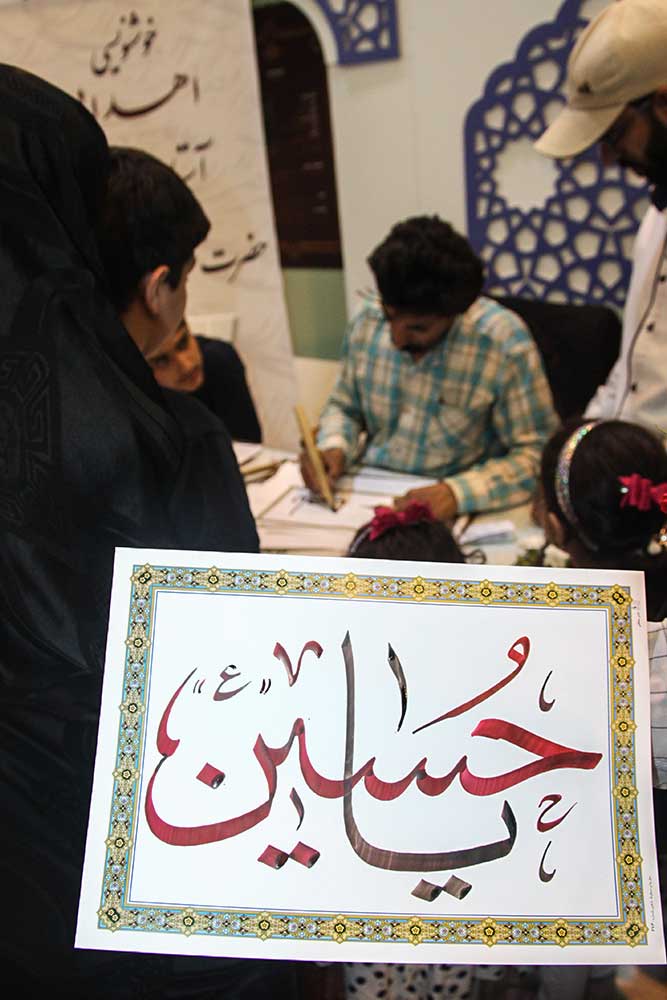 خوشنویسی
اهدا
حضرت
یا حسین «ع»